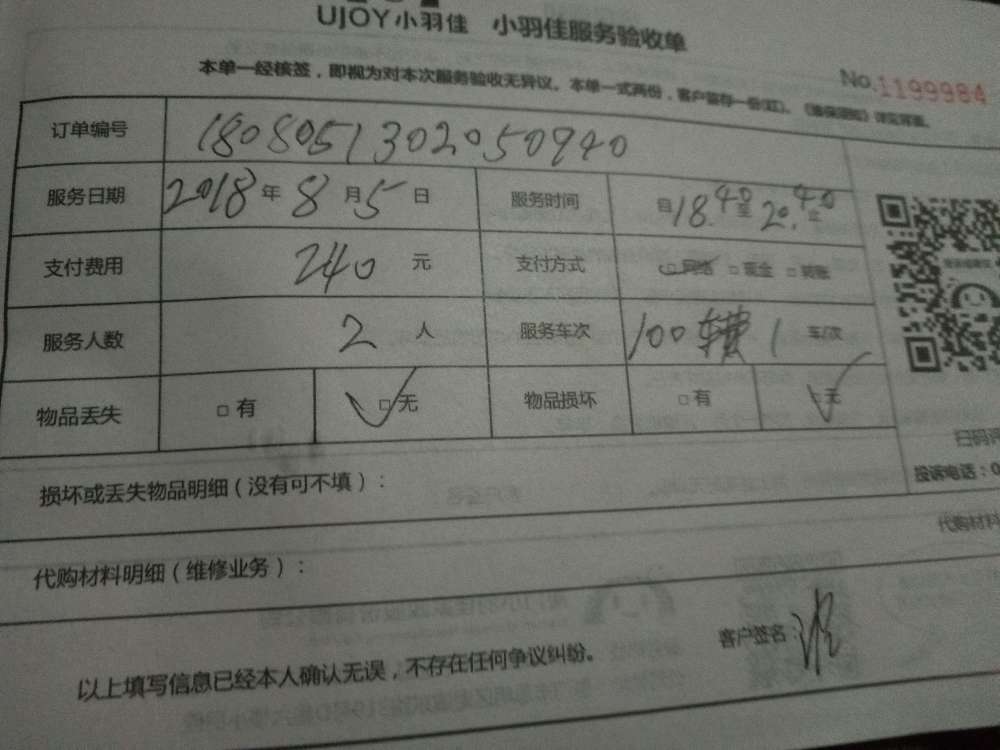 UJOY小羽佳 小羽佳服务验收单
本单一经核签，即视为对本次服务验收无异议。本单一式两份，客户留存一份(红)。
No.1199984
订单编号 180805130205​0940
服务日期 2018年8月5日 服务时间 自18.40至20.40止
支付费用 240元 支付方式 □网络 □现金 □转账
服务人数 2人 服务车次 100 1 车/次
物品丢失 □有 □无 物品损坏 □有 □无
扫码
损坏或丢失物品明细（没有可不填）：
投诉电话：0
代购材料
代购材料明细（维修业务）：
客户签名：
以上填写信息已经本人确认无误，不存在任何争议纠纷。